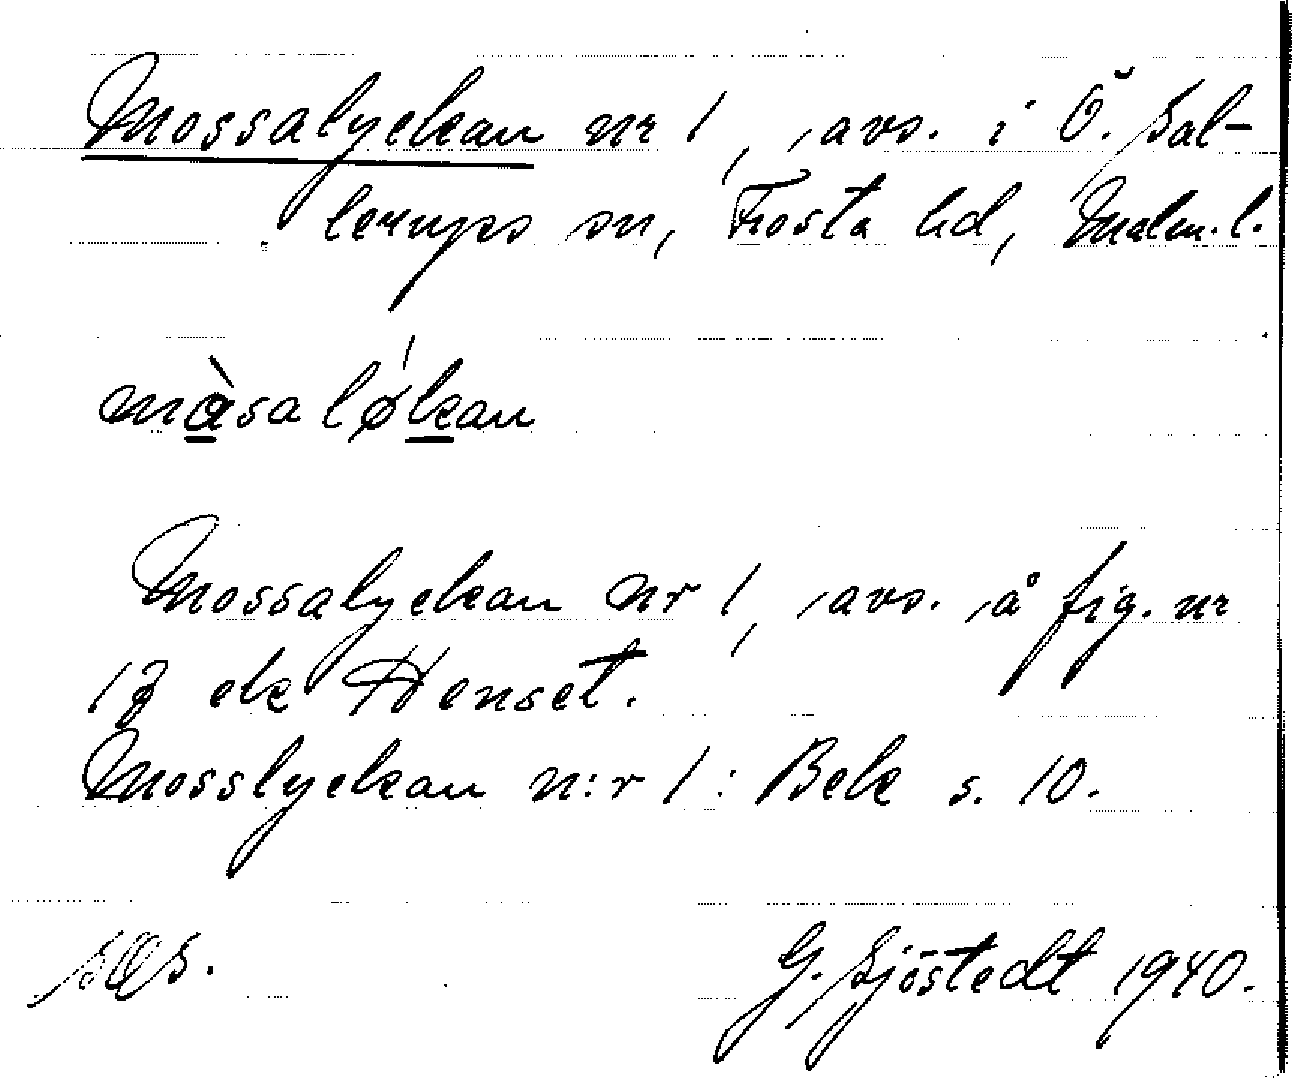 Mossalyckan nr 1, avs. i Ö. Sal-
lerups sn, Frosta hd, Malm. l.
màsaløkan
Mossalyckan nr 1, avs. å fig. nr
13 ek Henset.
Mosslyckan n:r 1: Bek s. 10.
G. Sjöstedt 1940.